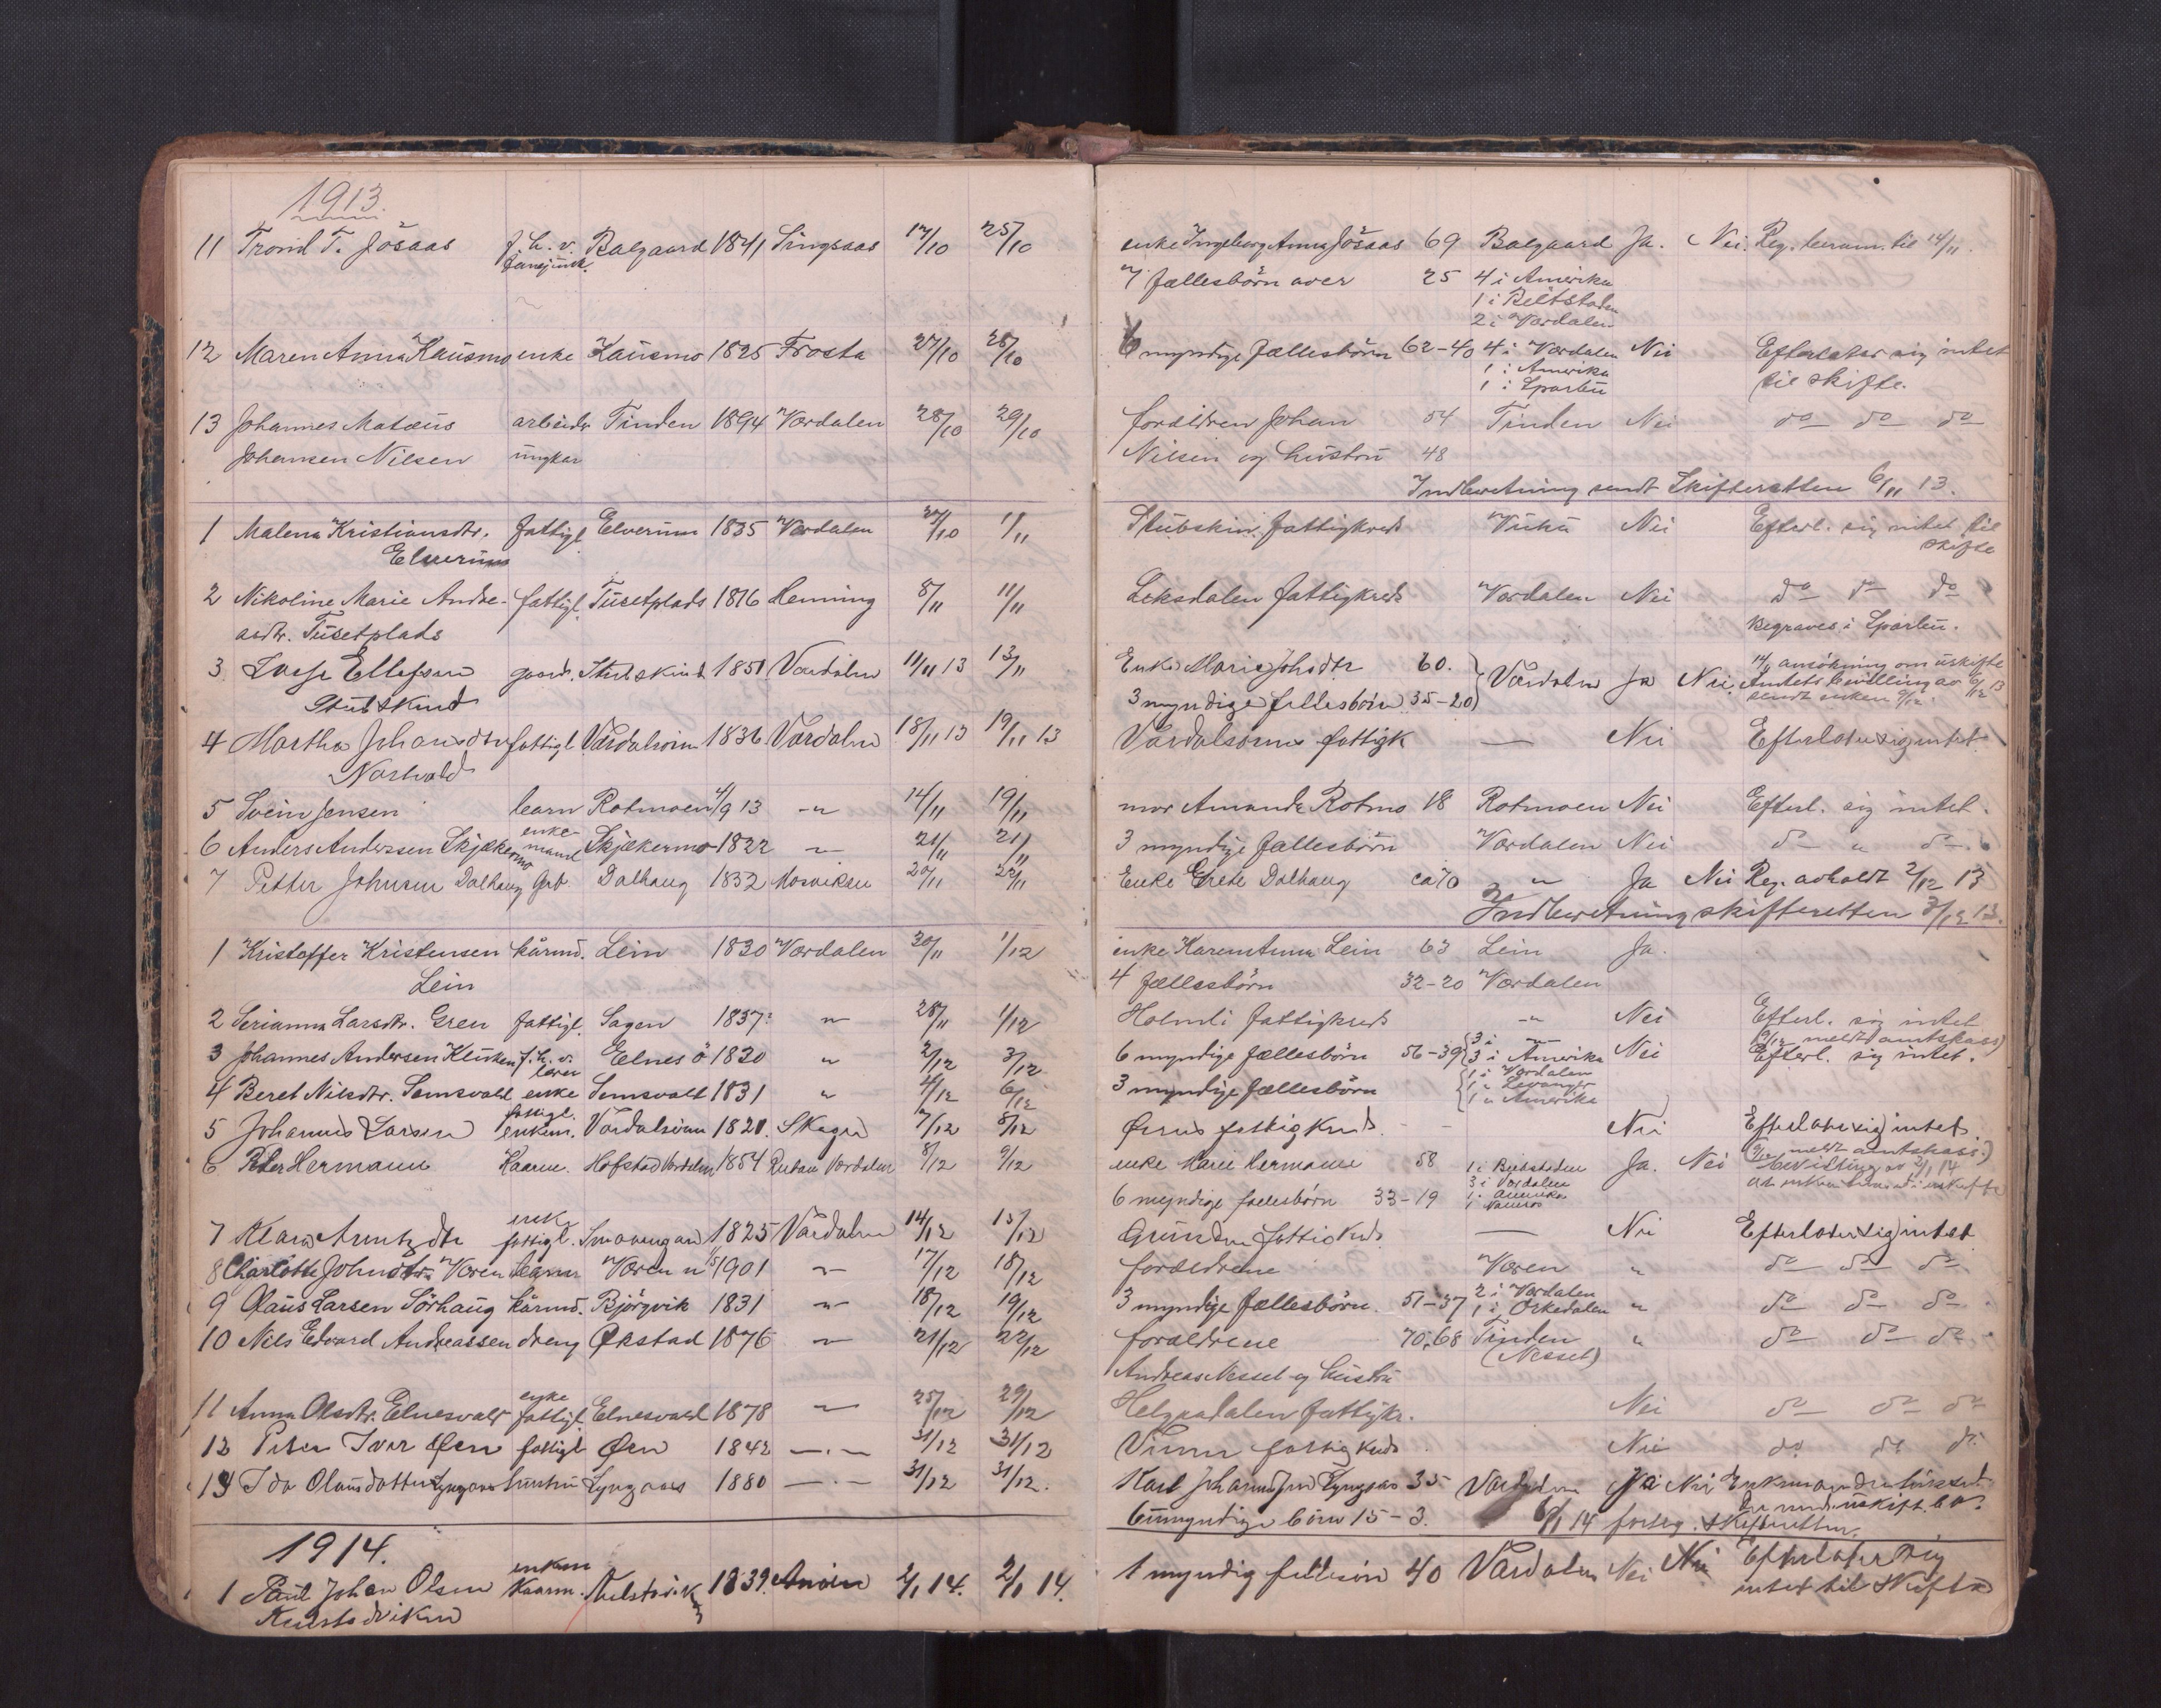 1913.
11 Trond T. Jösaas f. h. v. Balgaard 1841 Singsaas 17/10 25/10 enke Ingeborg Anna Jösaas 69 Balgaard Ja. Nei. Reg. til 14/11.
7 fællesbörn over 25 4 i Amerika
1 i Beitstaden
2 i Værdalen
12 Maren Anna Kausmo enke Kausmo 1825 Frosta 27/10 28/10 6 myndige fællesbörn 62-40 4 i Værdalen Nei Efterlater sig intet
1 i Amerika til skifte.
1 i Sparbu
13 Johannes Mateus arbeider Tinden 1894 Værdalen 28/10 29/10 forældren Johan 54 Tinden Nei do do do
Johansen Nilsen ungkar Nilsen og hustru 48
Indberetning sendt Skifteretten 6/11 13.
1 Malena Kristiansdtr. fattigl Elverum 1835 Værdalen 27/10 1/11 Stubskin fattigkreds Vuku Nei Efterl. sig intet til
Elverum skifte
2 Nikoline Marie Andre- fattigl. Tusetplads 1816 Henning 8/11 11/11 Leksdalen fattigkreds Værdalen Nei do do do
asdtr. Tusetplads Begraves i Sparbu.
3 Ellefsen gaard. Stubskind 1851 Værdalen 11/11 13 13/11 Enke Marie Johsdtr 60. Værdalen Ja Nei. 14/11 ansökning om uskifte
Stubskind 3 myndige fellesbörn 35-20 Amtets bevilling av 6/12 13
sendt enken 9/12.
4 Martha Johansdtr fattigl. Værdalsören 1836 Værdalen 18/11 13 19/11 13 Værdalsörens fattigk — Nei Efterlater sig intet.
5 Svein Jensen barn Rotmoen 4/9 13 -"- 14/11 19/11 mor Amanda Rotmo 18 Rotmoen Nei Efterl. sig intet.
6 Anders Anderssen Skjækermo enkemand Skjækermo 1822 -"- 21/11 21/11 3 myndige fællesbörn Værdalen Nei do " do
7 Petter Johnsen Dalhaug Gbr. Dalhaug 1832 Mosviken 20/11 22/11 Enke Grete Dalhaug ca 70 -"- Ja Nei Reg. avholdt 2/12 13
Indberetning skifteretten 3/12 13.
1 Kristoffer Kristensen kårmd. Lein 1830 Værdalen 20/11 1/12 enke Karen Anna Lein 63 Lein Ja.
Lein 4 fællesbörn 32-20 Værdalen
2 Serianna Larsdtr. Gren fattigl. Sagen 1837 -"- 28/11 1/12 Holmli fattigkreds -"- Nei Efterl. sig intet
3 Johannes Andersen Kluken f. h. v. Elnes ö 1830 " 2/12 3/12 6 myndige fællesbörn 56-39 3 i -"- 3 i Amerika Nei Efterl. sig intet.
4 Beret Nilsdtr. Semsvald enke Semsvald 1831 " 4/12 6/12 3 myndige fællesbörn 1 i Værdalen
1 " Levanger
1 " Amerika
5 Johannes Larsen fattigl. enkem. Værdalsören 1821. Skogn 7/12 8/12 Örens fattigkreds - - Nei Efterlater sig intet.
6 Peter Hermann Kaarm. Hofstad Værdalen 1854 Værdalen 8/12 9/12 enke Marie Hermann 58 1 i Beitstaden Ja. Nei Bevilling av 2/1 14
3 i Værdalen
6 myndige fællesbörn 33-19 1 i Amerika
1 Namsos
7 Klara Arntzdtr enke fattigl. 1825 Værdalen 14/12 15/12 Grunden fattigkreds — Nei Efterlater sig intet
8 Charlotte Johnsdtr. Væren barn Væren n 1901 -"- 17/12 18/12 forældrene Væren " do do do
9 Olaus Larsen Sörhaug kårmd. Björgvik 1831 -"- 18/12 19/12 3 myndige fællesbörn. 51-37 2 i Værdalen 1 i Orkedalen " do do do
10 Nils Edvard Andreassen dreng Økstad 1876 -"- 21/12 22/12 forældrene 70,68 Tinden " do do do
(Nessel)
Andreas Nessel og hustru
11 Anna Olsdtr. Elnesvald enke fattigl Elnesvald 1878 -"- 25/12 29/12 Helgaadalen fattigkr. Nei do do do
12 Peter Iver Øen fattigl Øen 1842 —.— 31/12 31/12 Vinne fattigkreds Nei do do do
13 Ida Olausdatter Lyngaas hustru Lyngaas 1880 —.— 31/12 31/12. Karl Johannesen Lyngaas 35 Værdalen Ja Nei
6 umyndige börn 15-3. 6/1 14 Skifteretten.
1914.
1 Paul Johan Olsen enkem Kaarm. 1839. 2/1 14. 2/1 14. 1 myndig 40 Værdalen Nei Nei Efterlater sig
intet til skifte